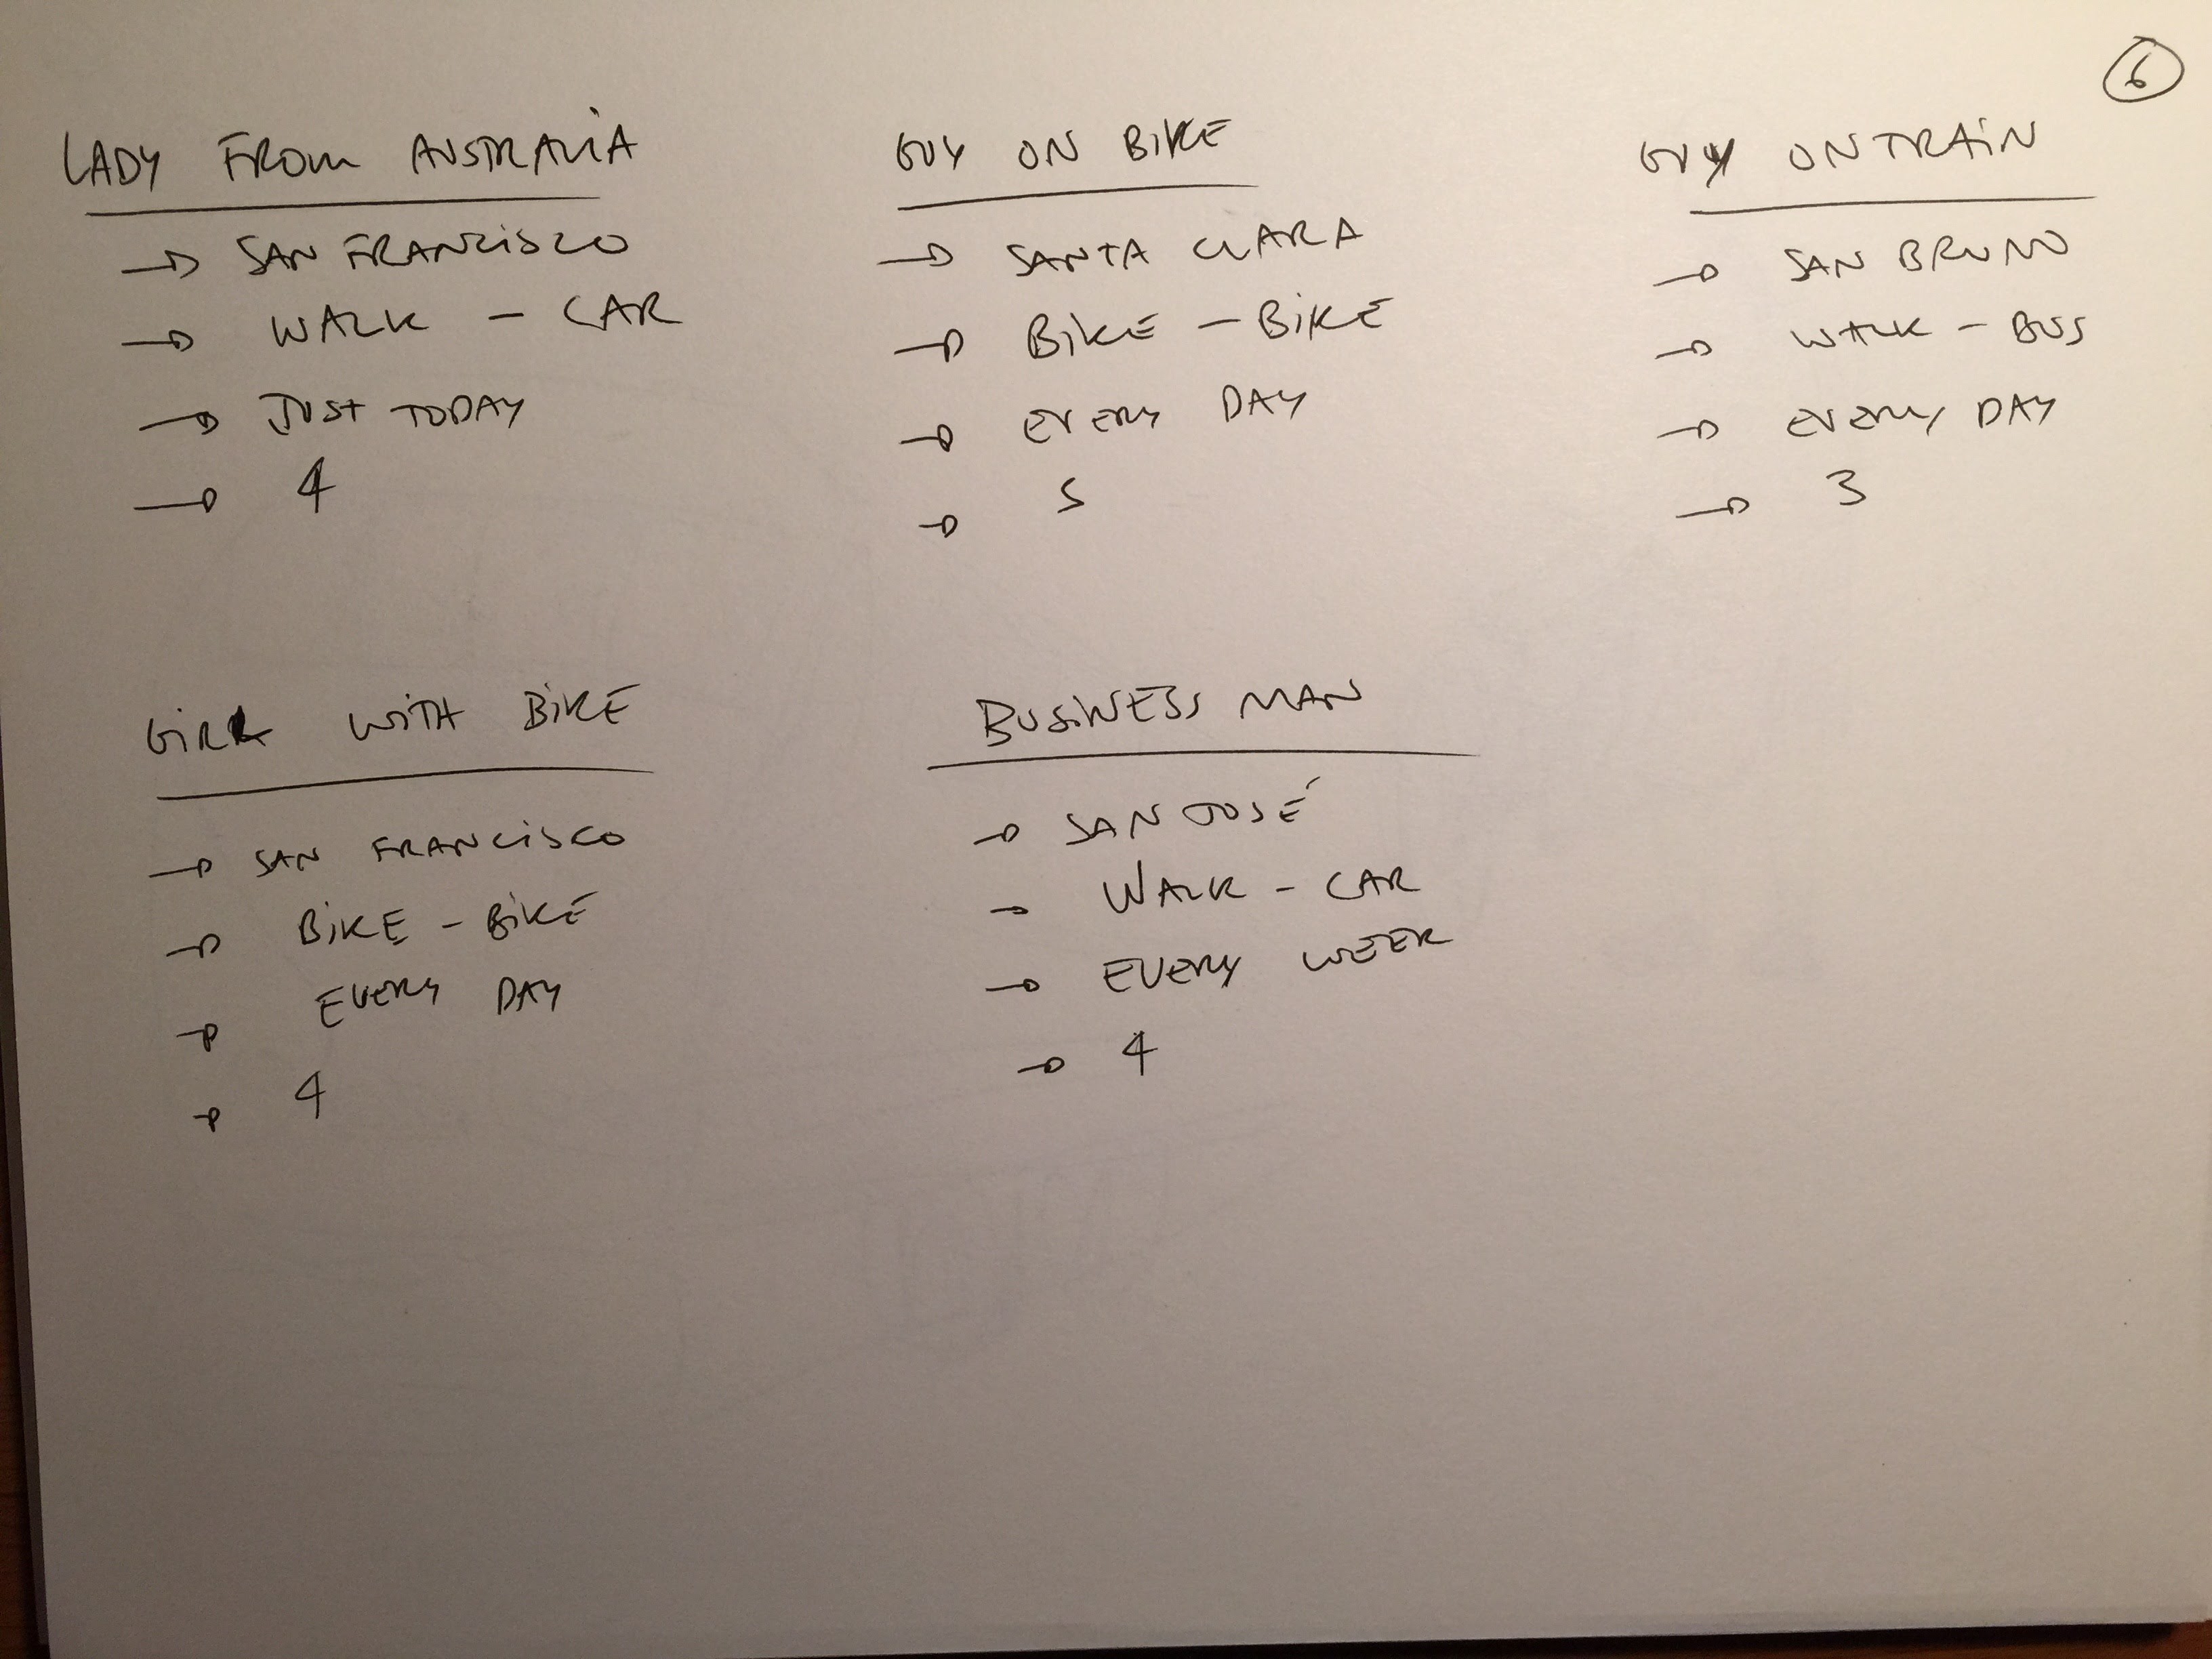 6
LADY FROM AUSTRALIA
→ SAN FRANCISCO
→ WALK - CAR
→ JUST TODAY
→ 4
GUY ON BIKE
→ SANTA CLARA
→ BIKE - BIKE
→ EVERY DAY
→ 5
GUY ON TRAIN
→ SAN BRUNO
→ WALK - BUS
→ EVERY DAY
→ 3
GIRL WITH BIKE
→ SAN FRANCISCO
→ BIKE - BIKE
→ EVERY DAY
→ 4
BUSINESS MAN
→ SAN JOSÉ
→ WALK - CAR
→ EVERY WEEK
→ 4